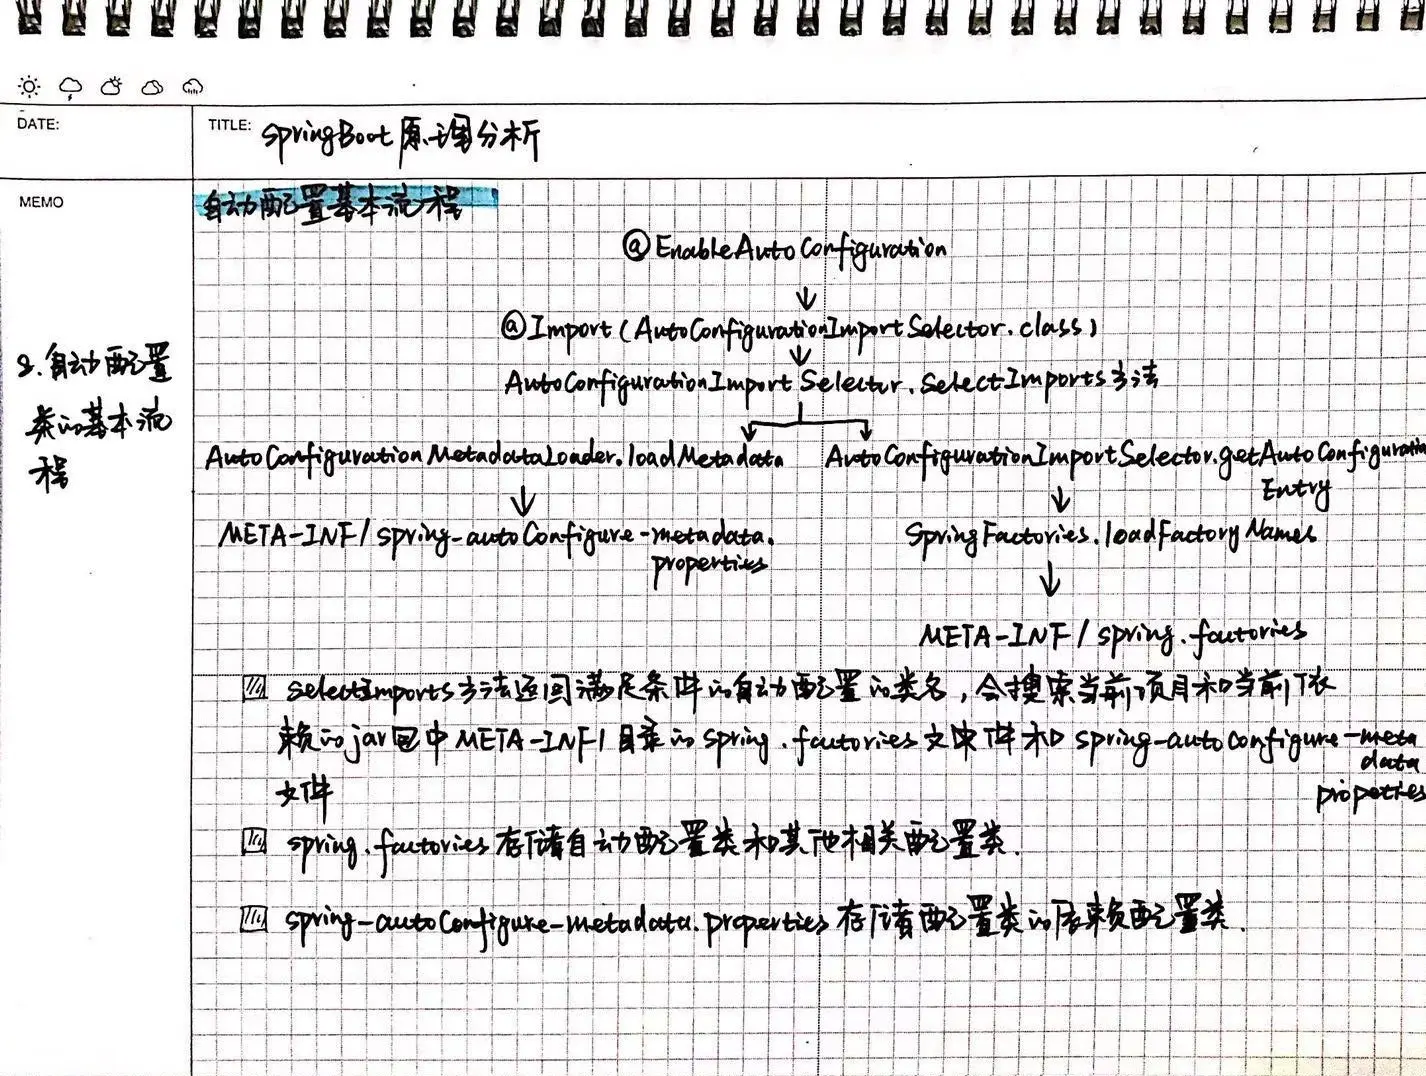 DATE:
TITLE: SpringBoot原理分析
MEMO
自动配置基本流程
2. 自动配置
类的基本流
程
@EnableAutoConfiguration
@Import(AutoConfigurationImportSelector.class)
AutoConfigurationImportSelector.SelectImports方法
AutoConfigurationMetadataLoader.loadMetadata
AutoConfigurationImportSelector.getAutoConfiguration
Entry
META-INF/spring-autoConfigure-metadata.
properties
SpringFactories.loadFactoryNames
META-INF/spring.factories
selectImports方法返回满足条件的自动配置的类名，会搜索当前项目和当前依
赖的jar包中META-INF/目录的spring.factories文件和spring-autoConfigure-meta
data
properties
文件
spring.factories存储自动配置类和其他相关配置类.
spring-autoConfigure-metadata.properties存储配置类的依赖配置类.